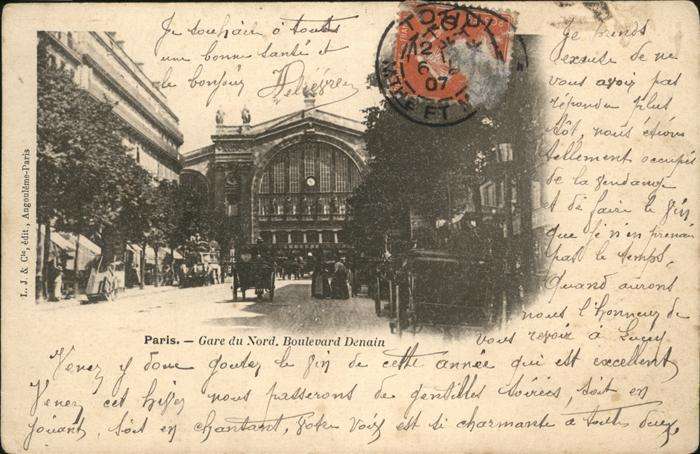 Je souhaite à toutes
une bonne santé et
le bonheur
Je
excuse de ne
vous avoir pas
répondu plus
tôt, nous étions
tellement occupés
de la vendange
et de faire le vin
que je n'en prenais
pas le temps,
Quand aurons
nous l'honneur de
vous revoir à
L. J. & Cie, édit., Angoulême-Paris
Paris. — Gare du Nord. Boulevard Denain
Venez y donc goutez le vin de cette année qui est excellent
Venez cet hiver nous passerons de gentilles soirées, soit en
jouant, soit en chantant, votre voix est si charmante à toutes deux,
12
6
07